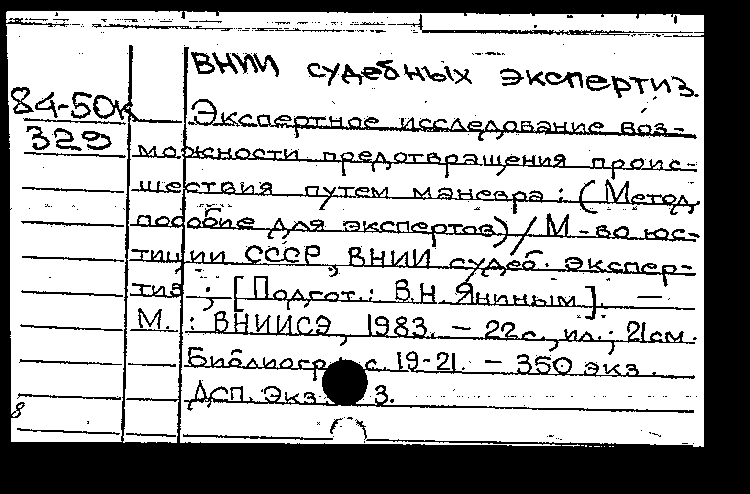 ВНИИ судебных экспертиз.
84-50к
329
Экспертное исследование воз-
можности предотвращения проис-
шествия путем маневра : (Метод.
пособие для экспертов) / М-во юс-
тиции СССР, ВНИИ судеб. экспер-
тиз ; [Подгот.: В.Н. Яниным]. —
М. : ВНИИСЭ, 1983. — 22с., ил.; 21см.
Библиогр.: с. 19-21. — 350 экз.
Дсп. Экз. 3.
8